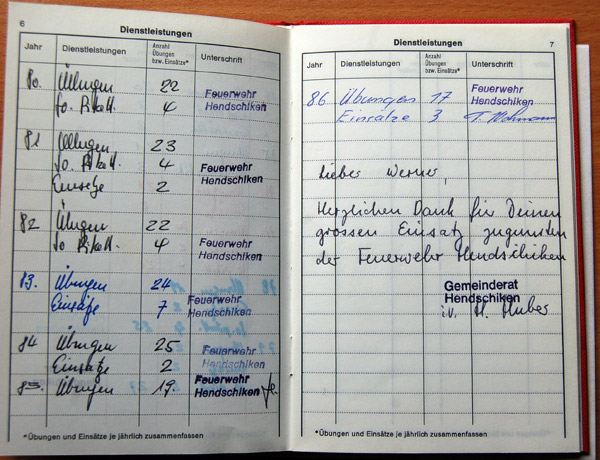 6
Dienstleistungen
Jahr Dienstleistungen Anzahl Übungen bzw. Einsätze* Unterschrift
80. Übungen 22 Feuerwehr
So. Pikett. 4 Hendschiken
81 Übungen 23
So. Pikett. 4 Feuerwehr
Einsätze 2 Hendschiken
82 Übungen 22
So Pikett. 4 Feuerwehr Hendschiken
83. Übungen 24
Einsätze 7 Feuerwehr Hendschiken
84 Übungen 25 Feuerwehr
Einsätze 2 Hendschiken
85. Übungen 19 Feuerwehr Hendschiken
*Übungen und Einsätze je jährlich zusammenfassen
7
Dienstleistungen
Jahr Dienstleistungen Anzahl Übungen bzw. Einsätze* Unterschrift
86 Übungen 17 Feuerwehr Hendschiken
Einsätze 3
Lieber Werner,
Herzlichen Dank für Deinen
grossen Einsatz zugunsten
der Feuerwehr Hendschiken
Gemeinderat
Hendschiken
i.v. H. Huber
*Übungen und Einsätze je jährlich zusammenfassen